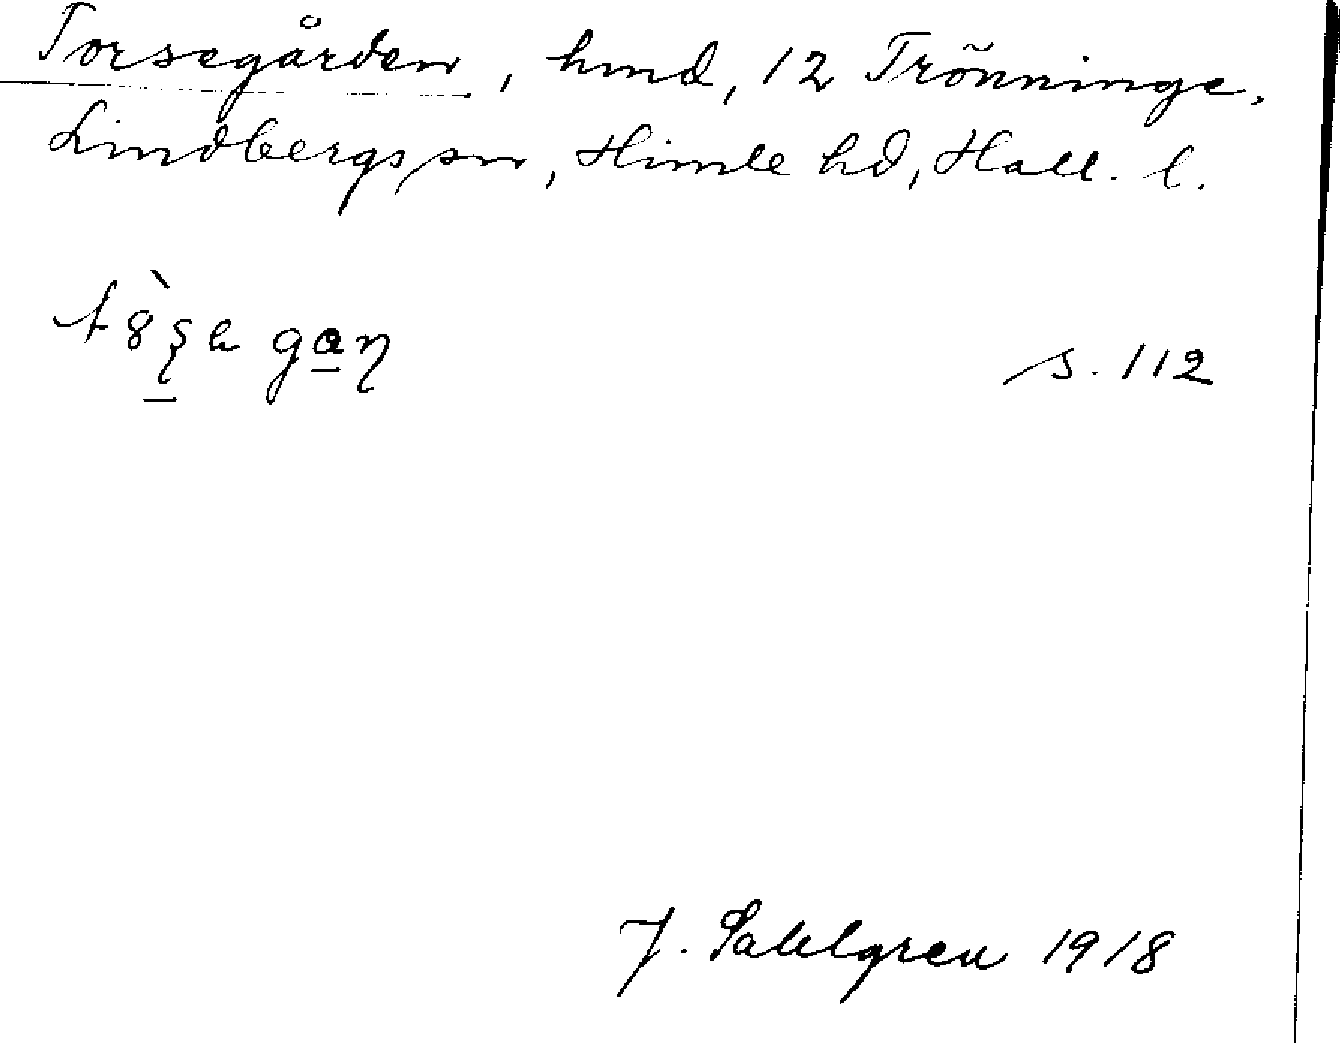 Torsegården, hmd, 12 Trönninge,
Lindbergs sn, Himle hd, Hall. l.
s. 112
J. Sahlgren 1918